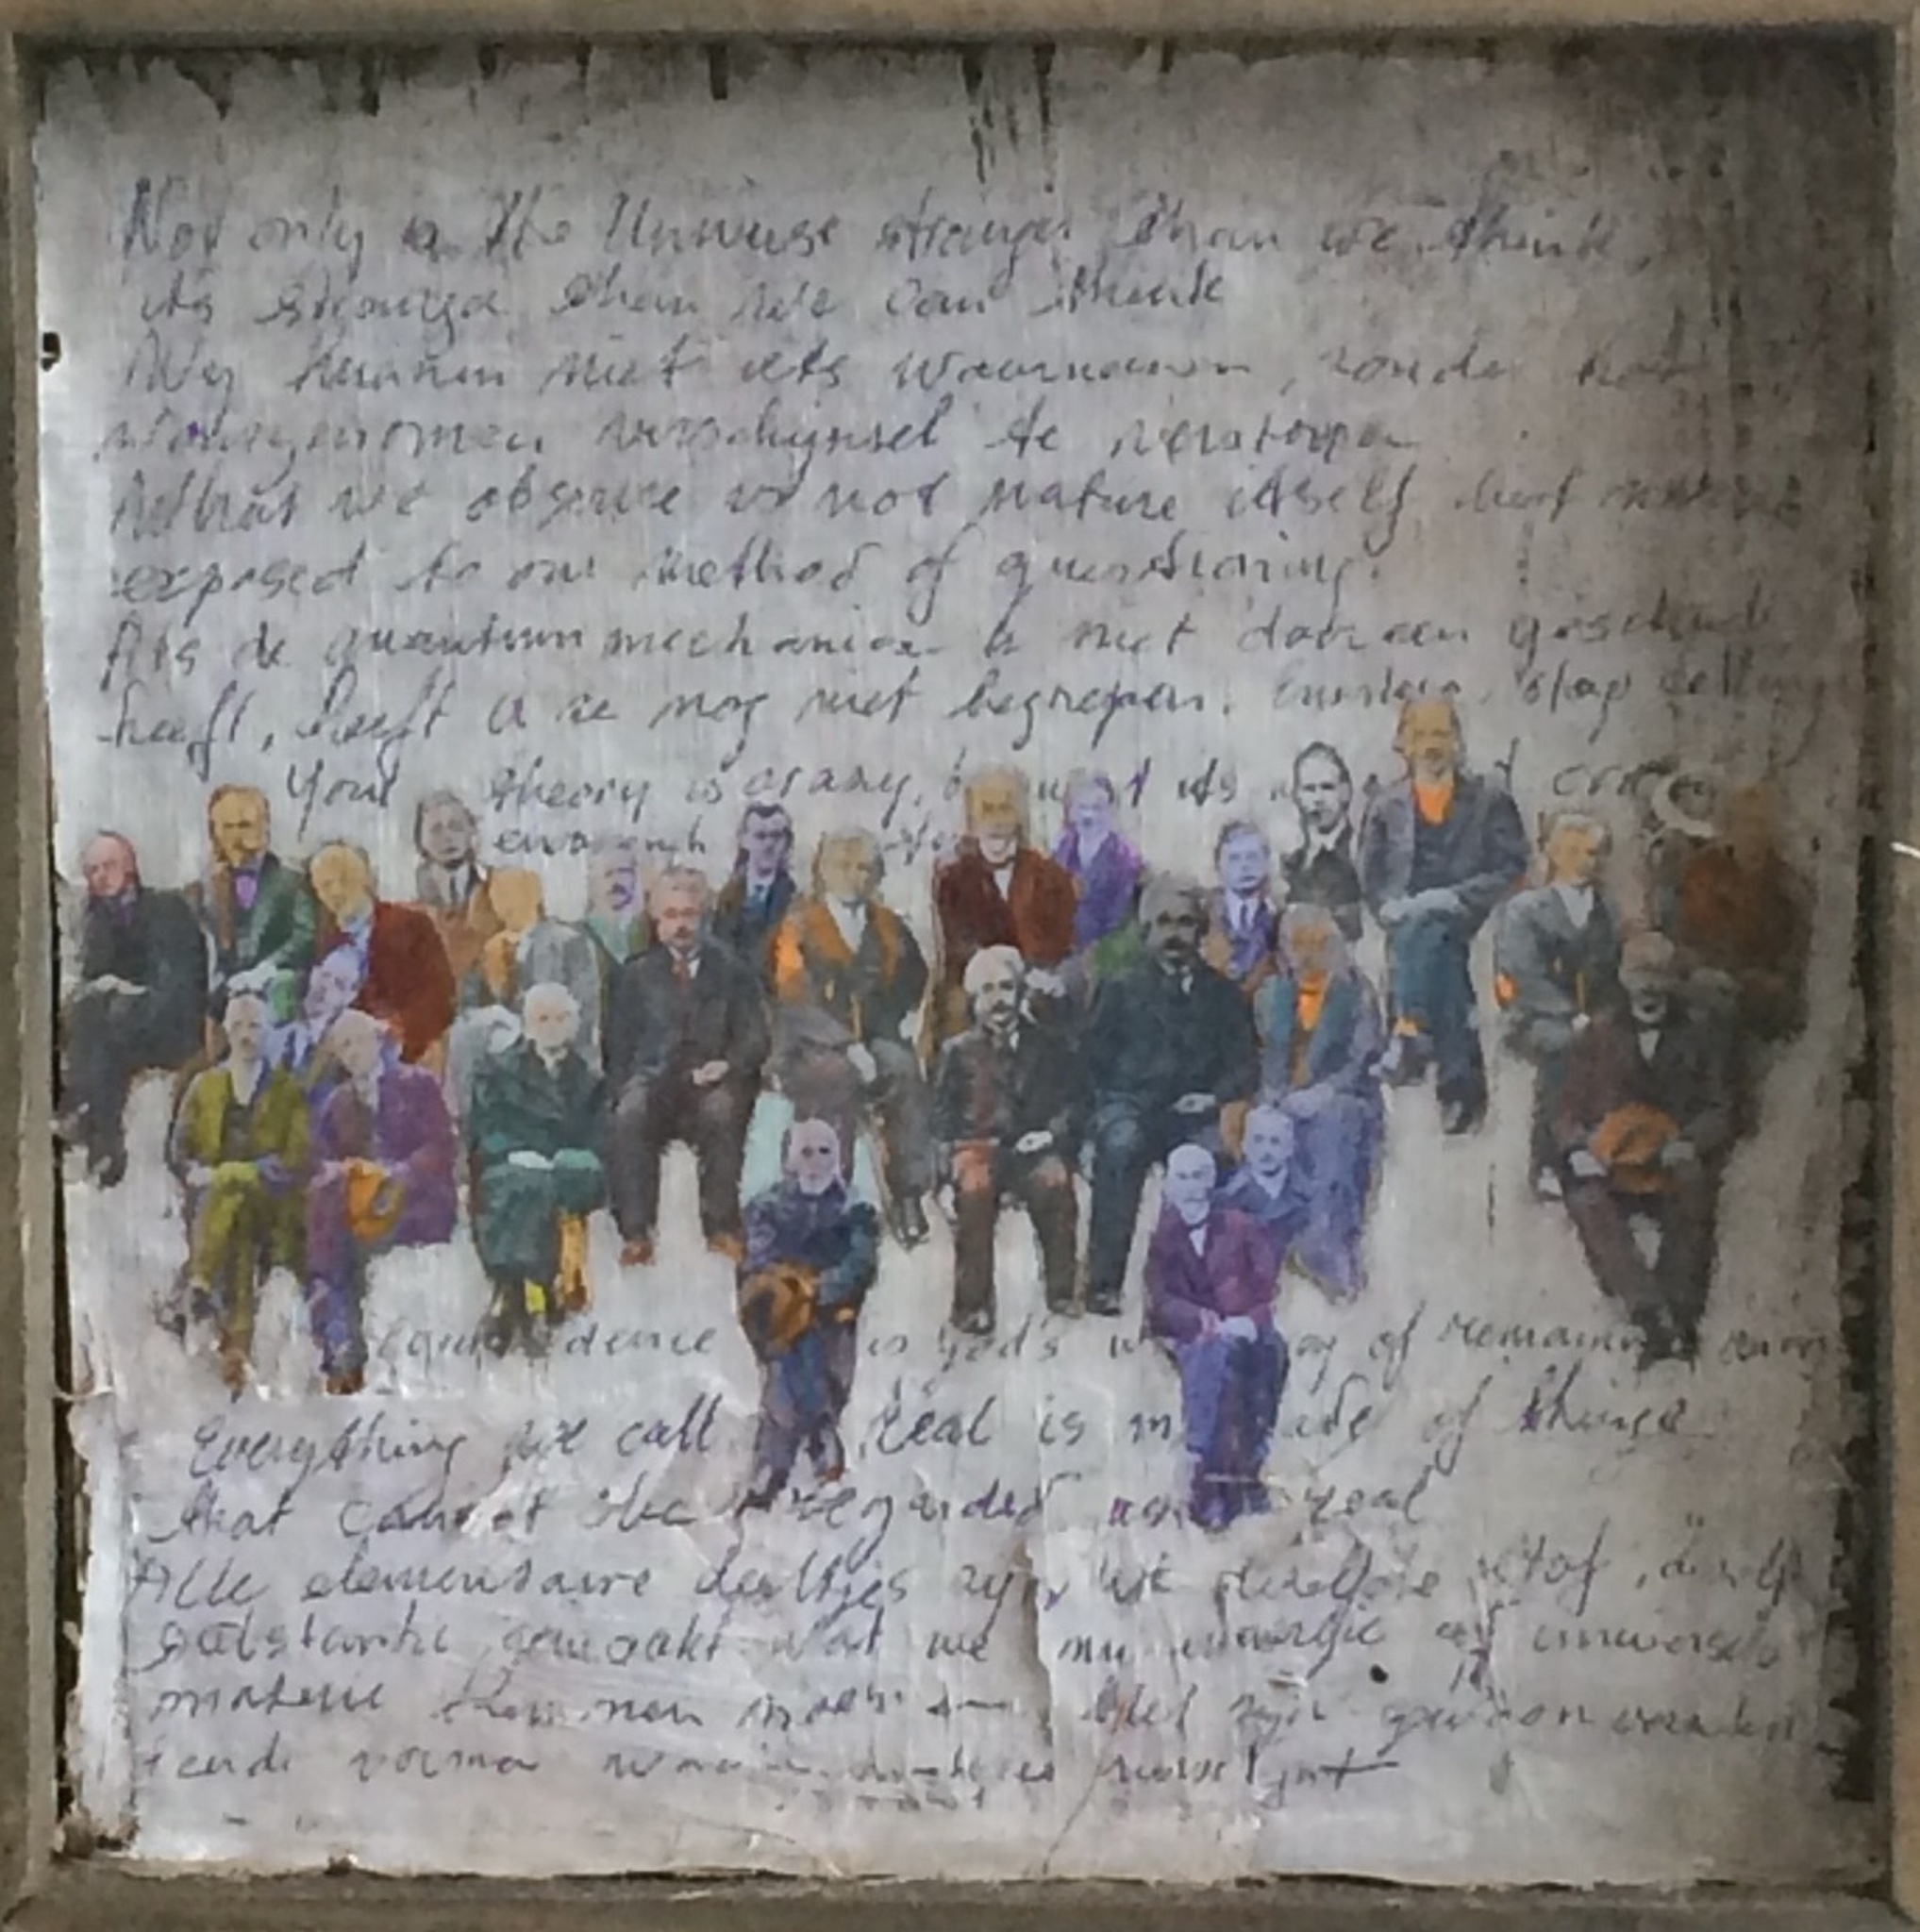 Not only is the Universe stranger than we think,
its stranger than we can think
Wij kunnen niet iets waarnemen, zonder het
waargenomen verschijnsel te verstoren
What we observe is not nature itself but nature
exposed to our method of questioning.
Als de quantummechanica U niet door een geschud
heeft, heeft U ze nog niet begrepen. Einstein, stop telling
Your theory is crazy, but its not crazy
enough
is God's way of remaining
Everything we call real is made of things
that cannot be regarded as real
Alle elementaire deeltjes zijn uit dezelfde stof,
substantie gemaakt wat we nu energie of universele
materie kunnen